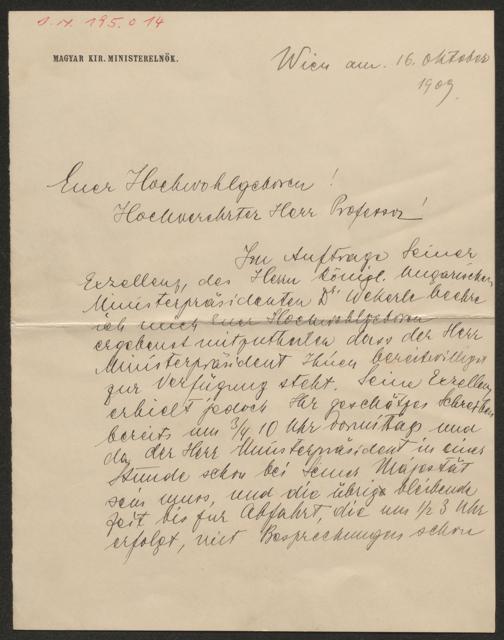 I.N. 195.014
MAGYAR KIR. MINISTERELNÖK.
Wien am. 16. Oktober
1909
Euer Hochwohlgeboren!
Hochverehrter Herr Professor!
Im Auftrage Seiner
Exzellenz, des Herrn königl. Ungarischen
Ministerpräsidenten Dr. Wekerle beehre
ich mich Euer Hochwohlgeboren
ergebenst mitzutheilen dass der Herr
Ministerpräsident Ihnen bereitwilligst
zur Verfügung steht. Seine Exzellenz
erhielt jedoch Ihr geschätztes Schreiben
bereits um 3/4 10 Uhr Vormittag und
da der Herr Ministerpräsident in einer
Stunde schon bei Seiner Majestät
sein muss, und die übrig bleibende
Zeit bis zur Abfahrt, die um 1/2 3 Uhr
erfolgt, mit Besprechungen schon